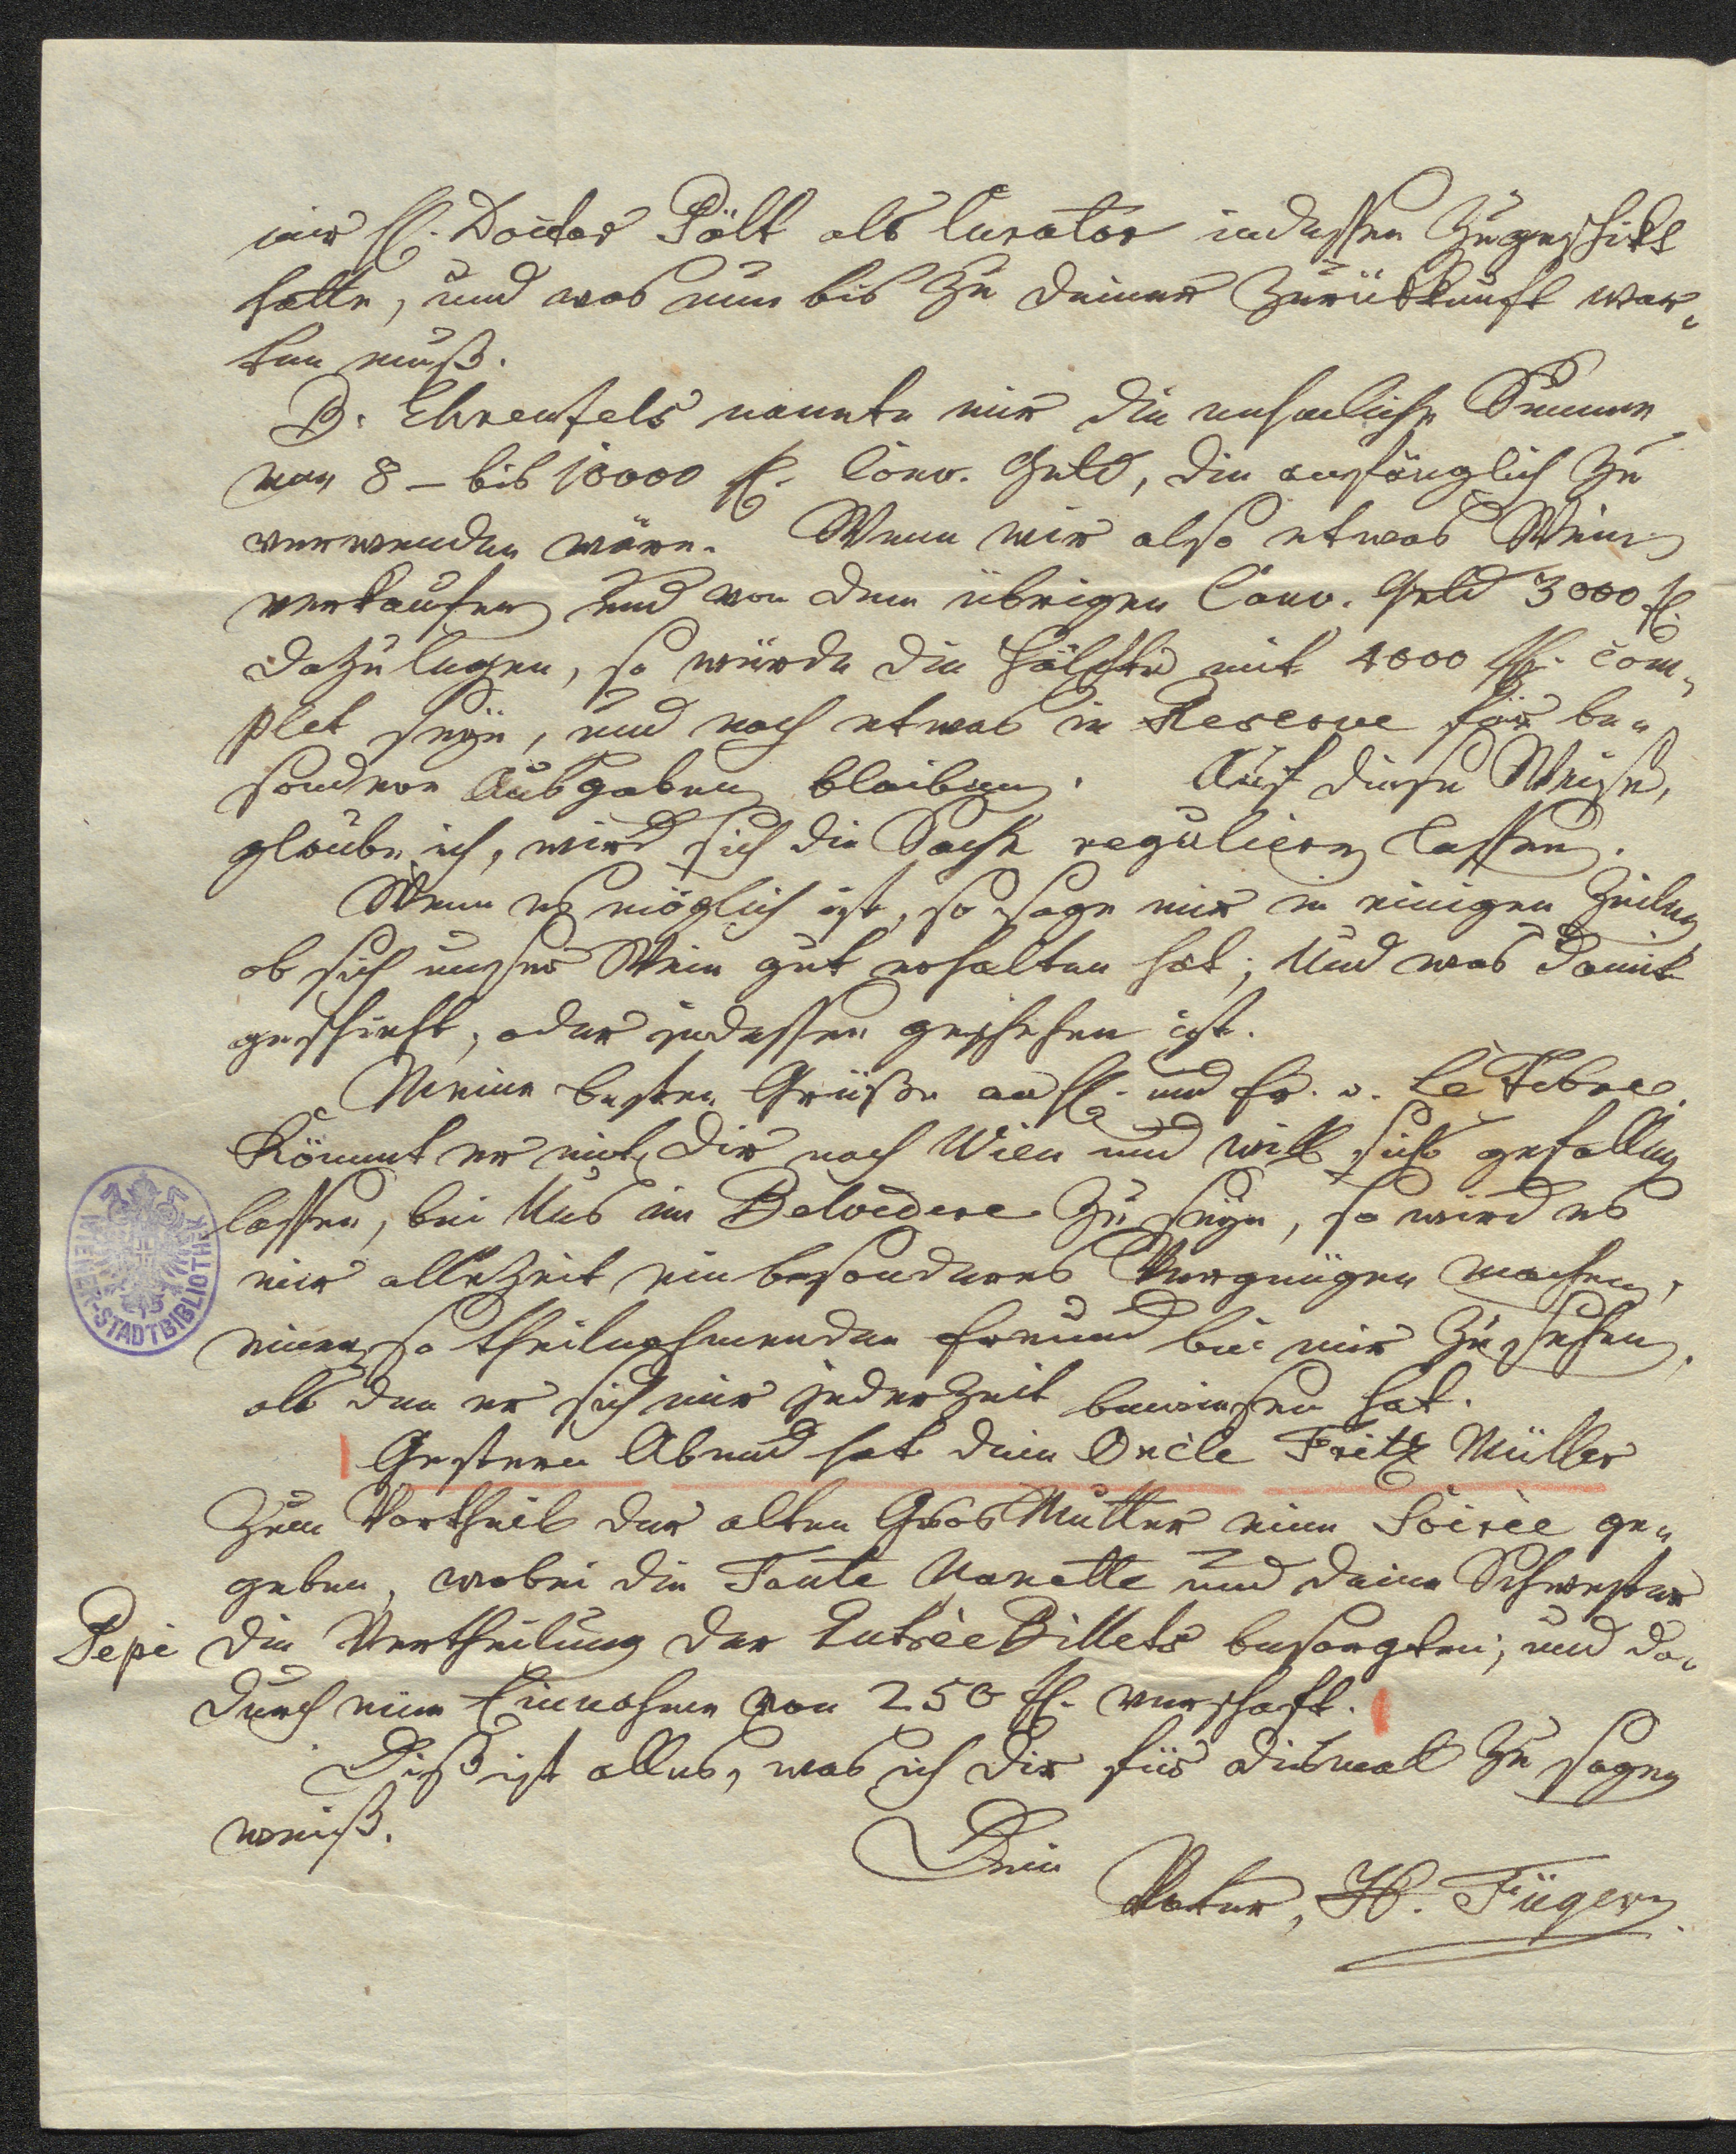 mir H. Docktor Pölt als Curator indessen zugeschikt
hatte, und was nun bis zu deiner Zurükkunft war„
ten muß.
B. Ehrenfels nannte mir die ansenliche Summe
von 8 – bis 10000 fl. Conv. Geld, die anfänglich zu
verwenden wäre. Wenn wir also etwas Wein
verkaufen und von dem übrigen Conv. Geld 3000 fl.
dazu legen, so würde die Hälfte mit 4000 fl. com„
plet seyn, und noch etwas in Reserve für be„
sondere Ausgaben bleiben. Auf diese Weise,
glaube ich, wird sich die Sache regulieren lassen.
Wenn es möglich ist, so sage mir in einigen Zeilen
ob sich unser Wein gut erhalten hat; Und was damit
geschieht, oder indessen geschehen ist.
Meine besten Grüße an H. und Fr. v. Le Febre.
Kömmt er mit dir nach Wien und will sichs gefallen
lassen, bei Uns im Belvedere zu seyn, so wird es
mir allezeit ein besonderes Vergnügen machen,
einen so theilnehmenden Freund bei mir zu sehen,
als den er sich mir jederzeit bewiesen hat.
Gestern Abend hat dein Oncle Fritz Müller
zum Vortheil der alten Gros Mutter eine Soirée ge„
geben, wobei die Tante Nanette und deine Schwester
Pepi die Vertheilung der Entrée Billets besorgten, und da„
durch eine Einnahme von 250 fl. verschaft.
Diß ist alles, was ich dir für dismal zu sagen
weiß.
Dein
Vater, H. Füger
WIENER-STADTBIBLIOTHEK